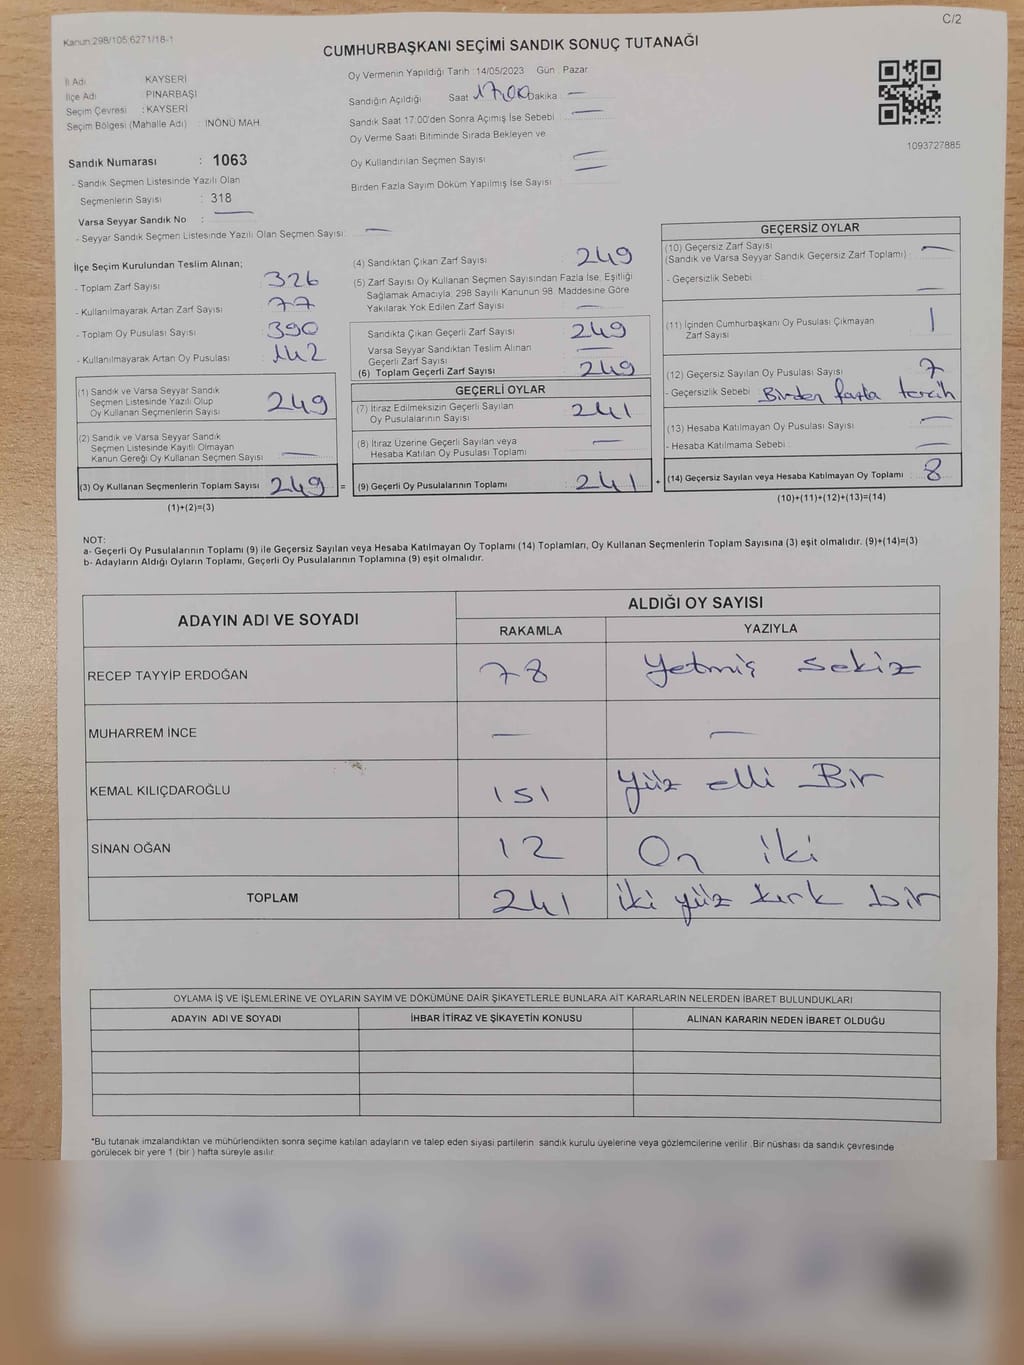 C/2
Kanun:298/105;6271/18-1
CUMHURBAŞKANI SEÇİMİ SANDIK SONUÇ TUTANAĞI
İl Adı KAYSERİ
İlçe Adı PINARBAŞI
Seçim Çevresi : KAYSERİ
Seçim Bölgesi (Mahalle Adı) : İNÖNÜ MAH.
Sandık Numarası : 1063
- Sandık Seçmen Listesinde Yazılı Olan
Seçmenlerin Sayısı : 318
Varsa Seyyar Sandık No : —
- Seyyar Sandık Seçmen Listesinde Yazılı Olan Seçmen Sayısı: —
Oy Vermenin Yapıldığı Tarih :14/05/2023 Gün : Pazar
Sandığın Açıldığı Saat 17:00 Dakika —
Sandık Saat 17:00'den Sonra Açımış İse Sebebi —
Oy Verme Saati Bitiminde Sırada Bekleyen ve
Oy Kullandırılan Seçmen Sayısı —
Birden Fazla Sayım Döküm Yapılmış İse Sayısı —
1093727885
İlçe Seçim Kurulundan Teslim Alınan;
- Toplam Zarf Sayısı : 326
- Kullanılmayarak Artan Zarf Sayısı : 77
- Toplam Oy Pusulası Sayısı : 390
- Kullanılmayarak Artan Oy Pusulası : 142
(1) Sandık ve Varsa Seyyar Sandık
Seçmen Listesinde Yazılı Olup
Oy Kullanan Seçmenlerin Sayısı : 249
(2) Sandık ve Varsa Seyyar Sandık
Seçmen Listesinde Kayıtlı Olmayan
Kanun Gereği Oy Kullanan Seçmen Sayısı : —
(3) Oy Kullanan Seçmenlerin Toplam Sayısı : 249 =
(1)+(2)=(3)
(4) Sandıktan Çıkan Zarf Sayısı : 249
(5) Zarf Sayısı Oy Kullanan Seçmen Sayısından Fazla İse, Eşitliği
Sağlamak Amacıyla, 298 Sayılı Kanunun 98. Maddesine Göre
Yakılarak Yok Edilen Zarf Sayısı : —
Sandıkta Çıkan Geçerli Zarf Sayısı : 249
Varsa Seyyar Sandıktan Teslim Alınan
Geçerli Zarf Sayısı : —
(6) Toplam Geçerli Zarf Sayısı : 249
GEÇERLİ OYLAR
(7) İtiraz Edilmeksizin Geçerli Sayılan
Oy Pusulalarının Sayısı : 241
(8) İtiraz Üzerine Geçerli Sayılan veya
Hesaba Katılan Oy Pusulası Toplamı : —
(9) Geçerli Oy Pusulalarının Toplamı : 241 +
GEÇERSİZ OYLAR
(10) Geçersiz Zarf Sayısı : —
(Sandık ve Varsa Seyyar Sandık Geçersiz Zarf Toplamı)
- Geçersizlik Sebebi : —
(11) İçinden Cumhurbaşkanı Oy Pusulası Çıkmayan
Zarf Sayısı : 1
(12) Geçersiz Sayılan Oy Pusulası Sayısı : 7
- Geçersizlik Sebebi : Birden fazla tercih
(13) Hesaba Katılmayan Oy Pusulası Sayısı : —
- Hesaba Katılmama Sebebi : —
(14) Geçersiz Sayılan veya Hesaba Katılmayan Oy Toplamı : 8
(10)+(11)+(12)+(13)=(14)
NOT:
a- Geçerli Oy Pusulalarının Toplamı (9) ile Geçersiz Sayılan veya Hesaba Katılmayan Oy Toplamı (14) Toplamları, Oy Kullanan Seçmenlerin Toplam Sayısına (3) eşit olmalıdır. (9)+(14)=(3)
b- Adayların Aldığı Oyların Toplamı, Geçerli Oy Pusulalarının Toplamına (9) eşit olmalıdır.
ADAYIN ADI VE SOYADI ALDIĞI OY SAYISI
RAKAMLA YAZIYLA
RECEP TAYYİP ERDOĞAN 78 Yetmiş sekiz
MUHARREM İNCE — —
KEMAL KILIÇDAROĞLU 151 Yüz elli Bir
SİNAN OĞAN 12 On iki
TOPLAM 241 iki yüz kırk bir
OYLAMA İŞ VE İŞLEMLERİNE VE OYLARIN SAYIM VE DÖKÜMÜNE DAİR ŞİKAYETLERLE BUNLARA AİT KARARLARIN NELERDEN İBARET BULUNDUKLARI
ADAYIN ADI VE SOYADI İHBAR İTİRAZ VE ŞİKAYETİN KONUSU ALINAN KARARIN NEDEN İBARET OLDUĞU
*Bu tutanak imzalandıktan ve mühürlendikten sonra seçime katılan adayların ve talep eden siyasi partilerin sandık kurulu üyelerine veya gözlemcilerine verilir. Bir nüshası da sandık çevresinde
görülecek bir yere 1 (bir ) hafta süreyle asılır.